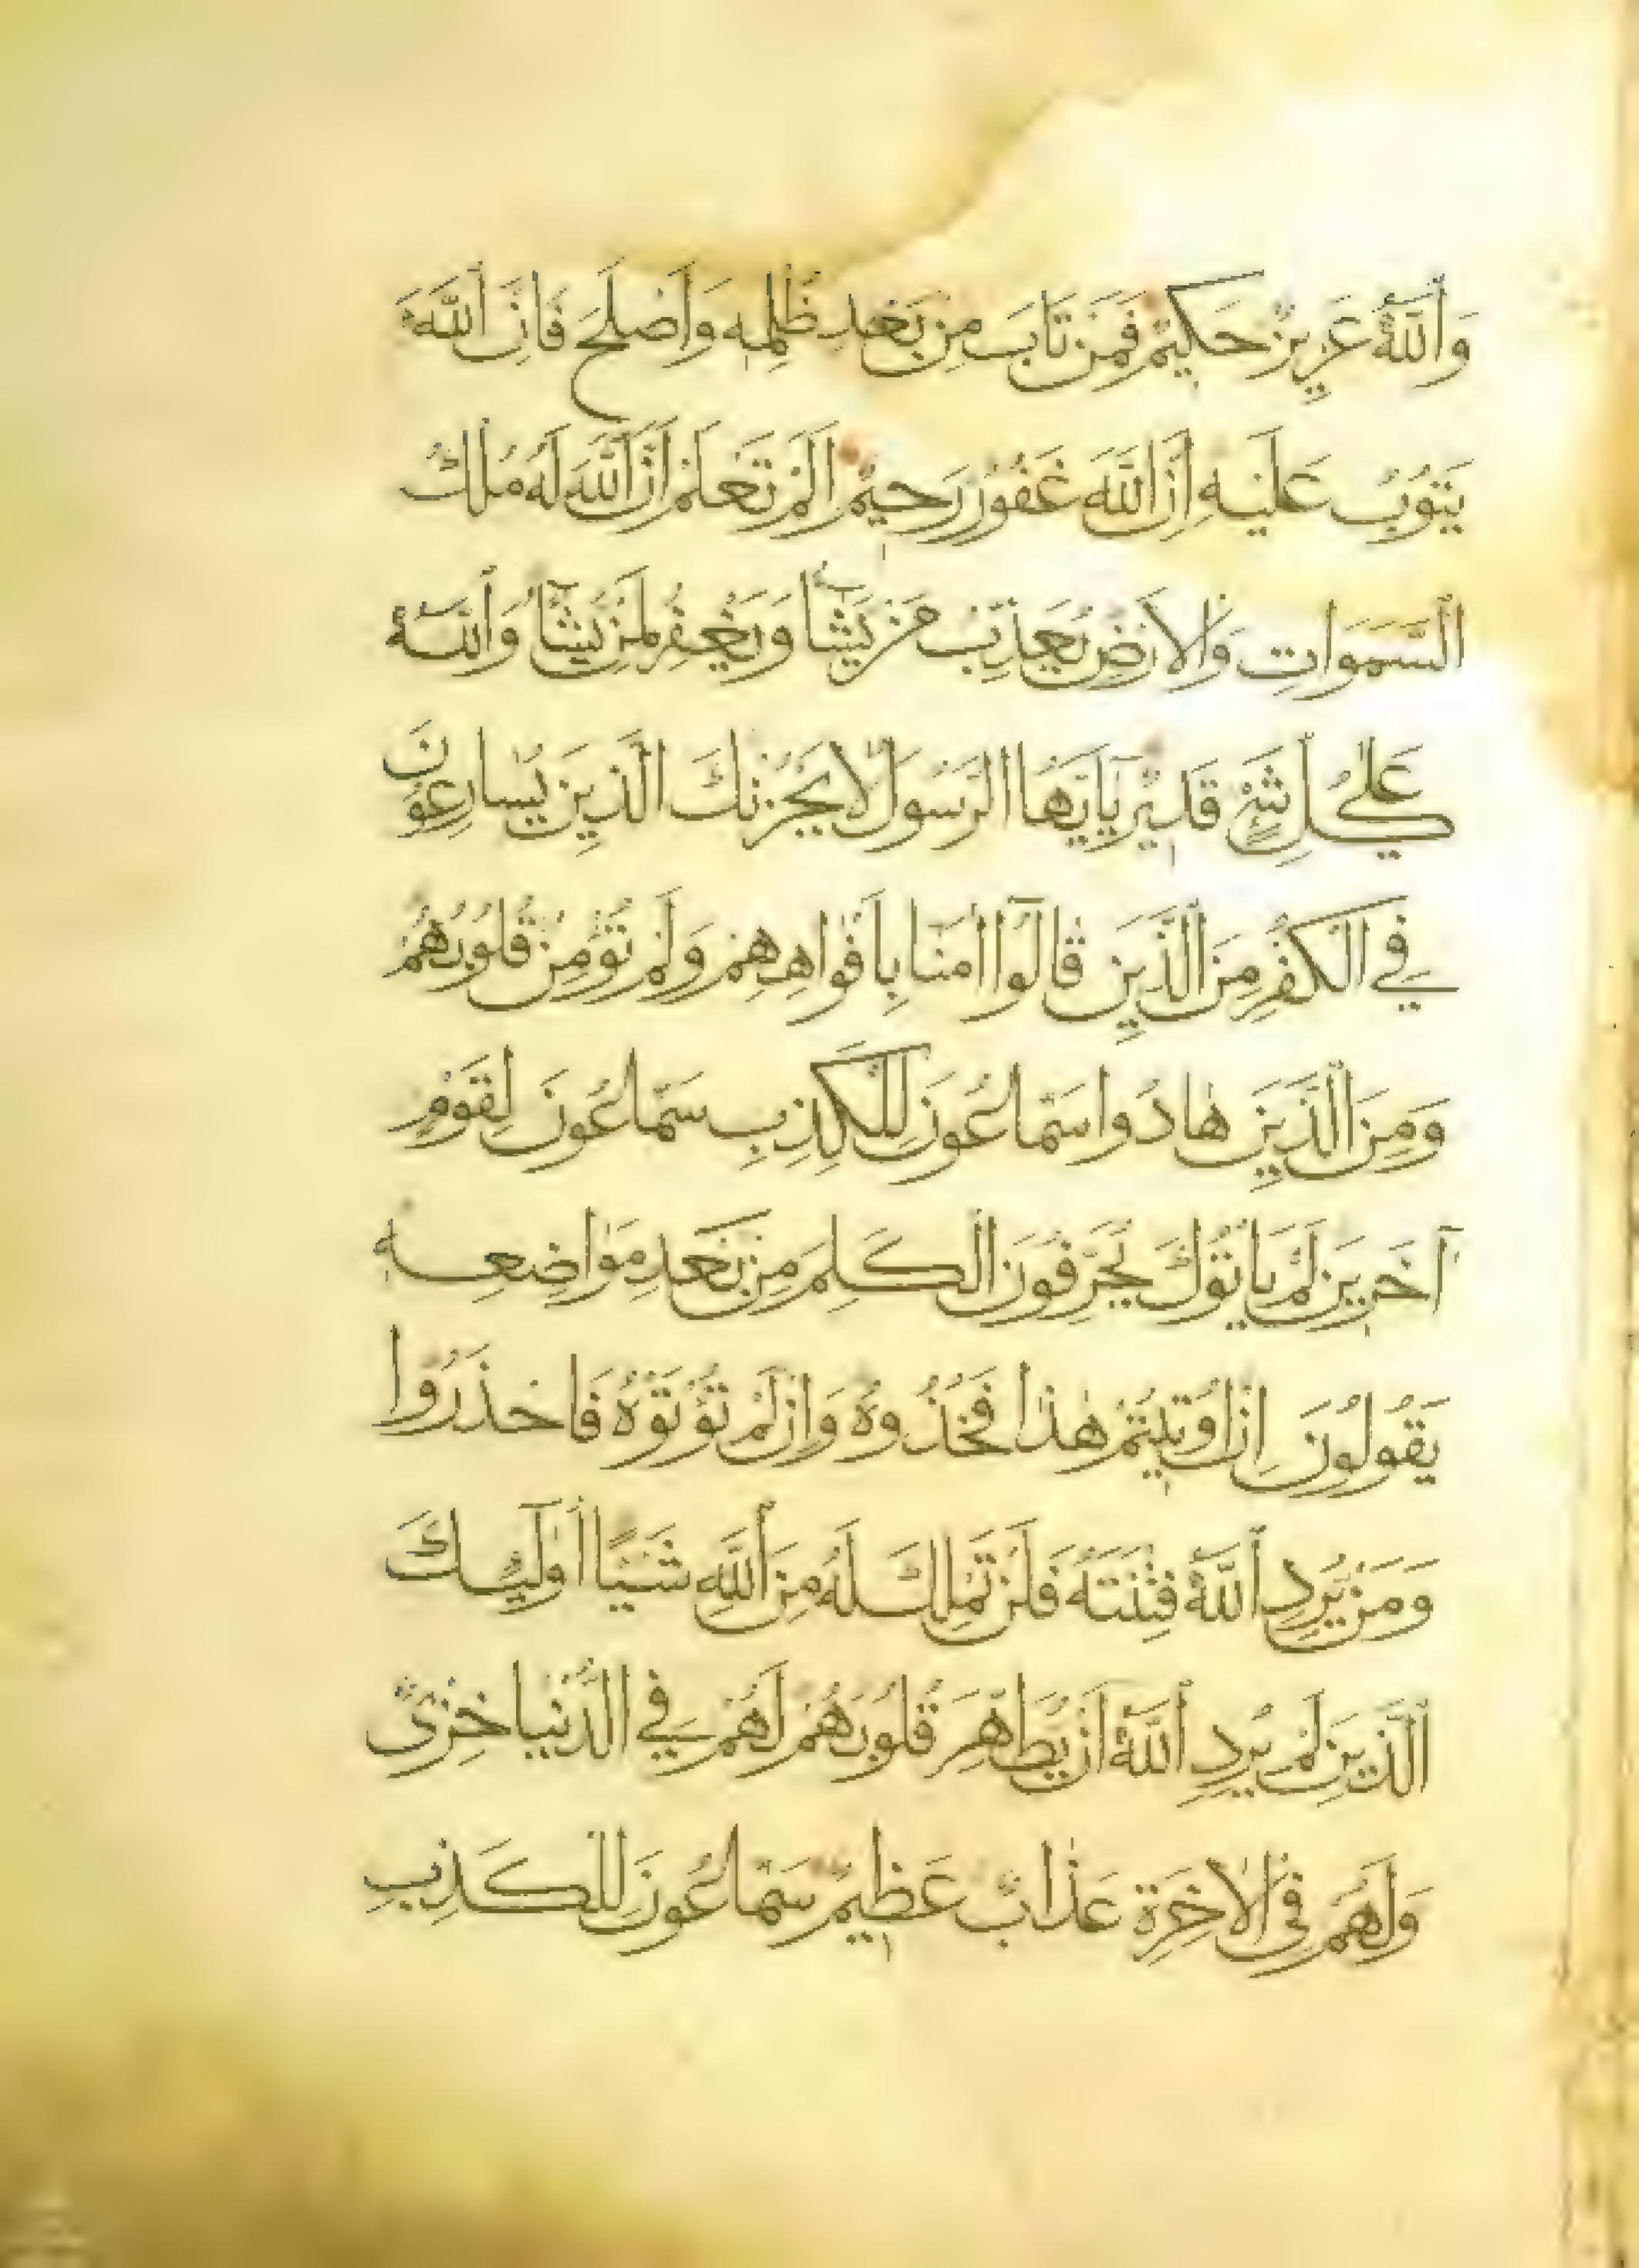 وَاَللّٰهُ عَزِيزٌ حَكِيمٌ فَمَنْ تَابَ مِنْ بَعْدِ ظُلْمِهِ وَاَصْلَحَ فَاِنَّ اَللّٰهَ
يَتُوبُ عَلَيْهِ اِنَّ اللّٰهَ غَفُورٌ رَحِيمٌ اَلَمْ تَعْلَمْ اَنَّ اللّٰهَ لَهُ مُلْكُ
السَّمَوَاتِ وَالْاَرْضِ يُعَذِّبُ مَنْ يَشَآءُ وَيَغْفِرُ لِمَنْ يَشَآءُ وَاَللّٰهُ
عَلٰى كُلِّ شَيْءٍ قَدِيرٌ يَآ اَيُّهَا الرَّسُولُ لَا يَحْزُنْكَ الَّذِينَ يُسَارِعُونَ
فِي الْكُفْرِ مِنَ الَّذِينَ قَالُوٓا اٰمَنَّا بِاَفْوَاهِهِمْ وَلَمْ تُؤْمِنْ قُلُوبُهُمْ
وَمِنَ الَّذِينَ هَادُوا سَمَّاعُونَ لِلْكَذِبِ سَمَّاعُونَ لِقَوْمٍ
آخَرِينَ لَمْ يَاْتُوكَ يُحَرِّفُونَ الْكَلِمَ مِنْ بَعْدِ مَوَاضِعِهِ
يَقُولُونَ اِنْ اُوتِيتُمْ هٰذَا فَخُذُوهُ وَاِنْ لَمْ تُؤْتَوْهُ فَاحْذَرُوا
وَمَنْ يُرِدِ اَللّٰهُ فِتْنَتَهُ فَلَنْ تَمْلِكَ لَهُ مِنَ اَللّٰهِ شَيْئًا اُولٰٓئِكَ
اَلَّذِينَ لَمْ يُرِدِ اَللّٰهُ اَنْ يُطَهِّرَ قُلُوبَهُمْ لَهُمْ فِي الدُّنْيَا خِزْىٌ
وَلَهُمْ فِي الْاٰخِرَةِ عَذَابٌ عَظِيمٌ سَمَّاعُونَ لِلْكَذِبِ